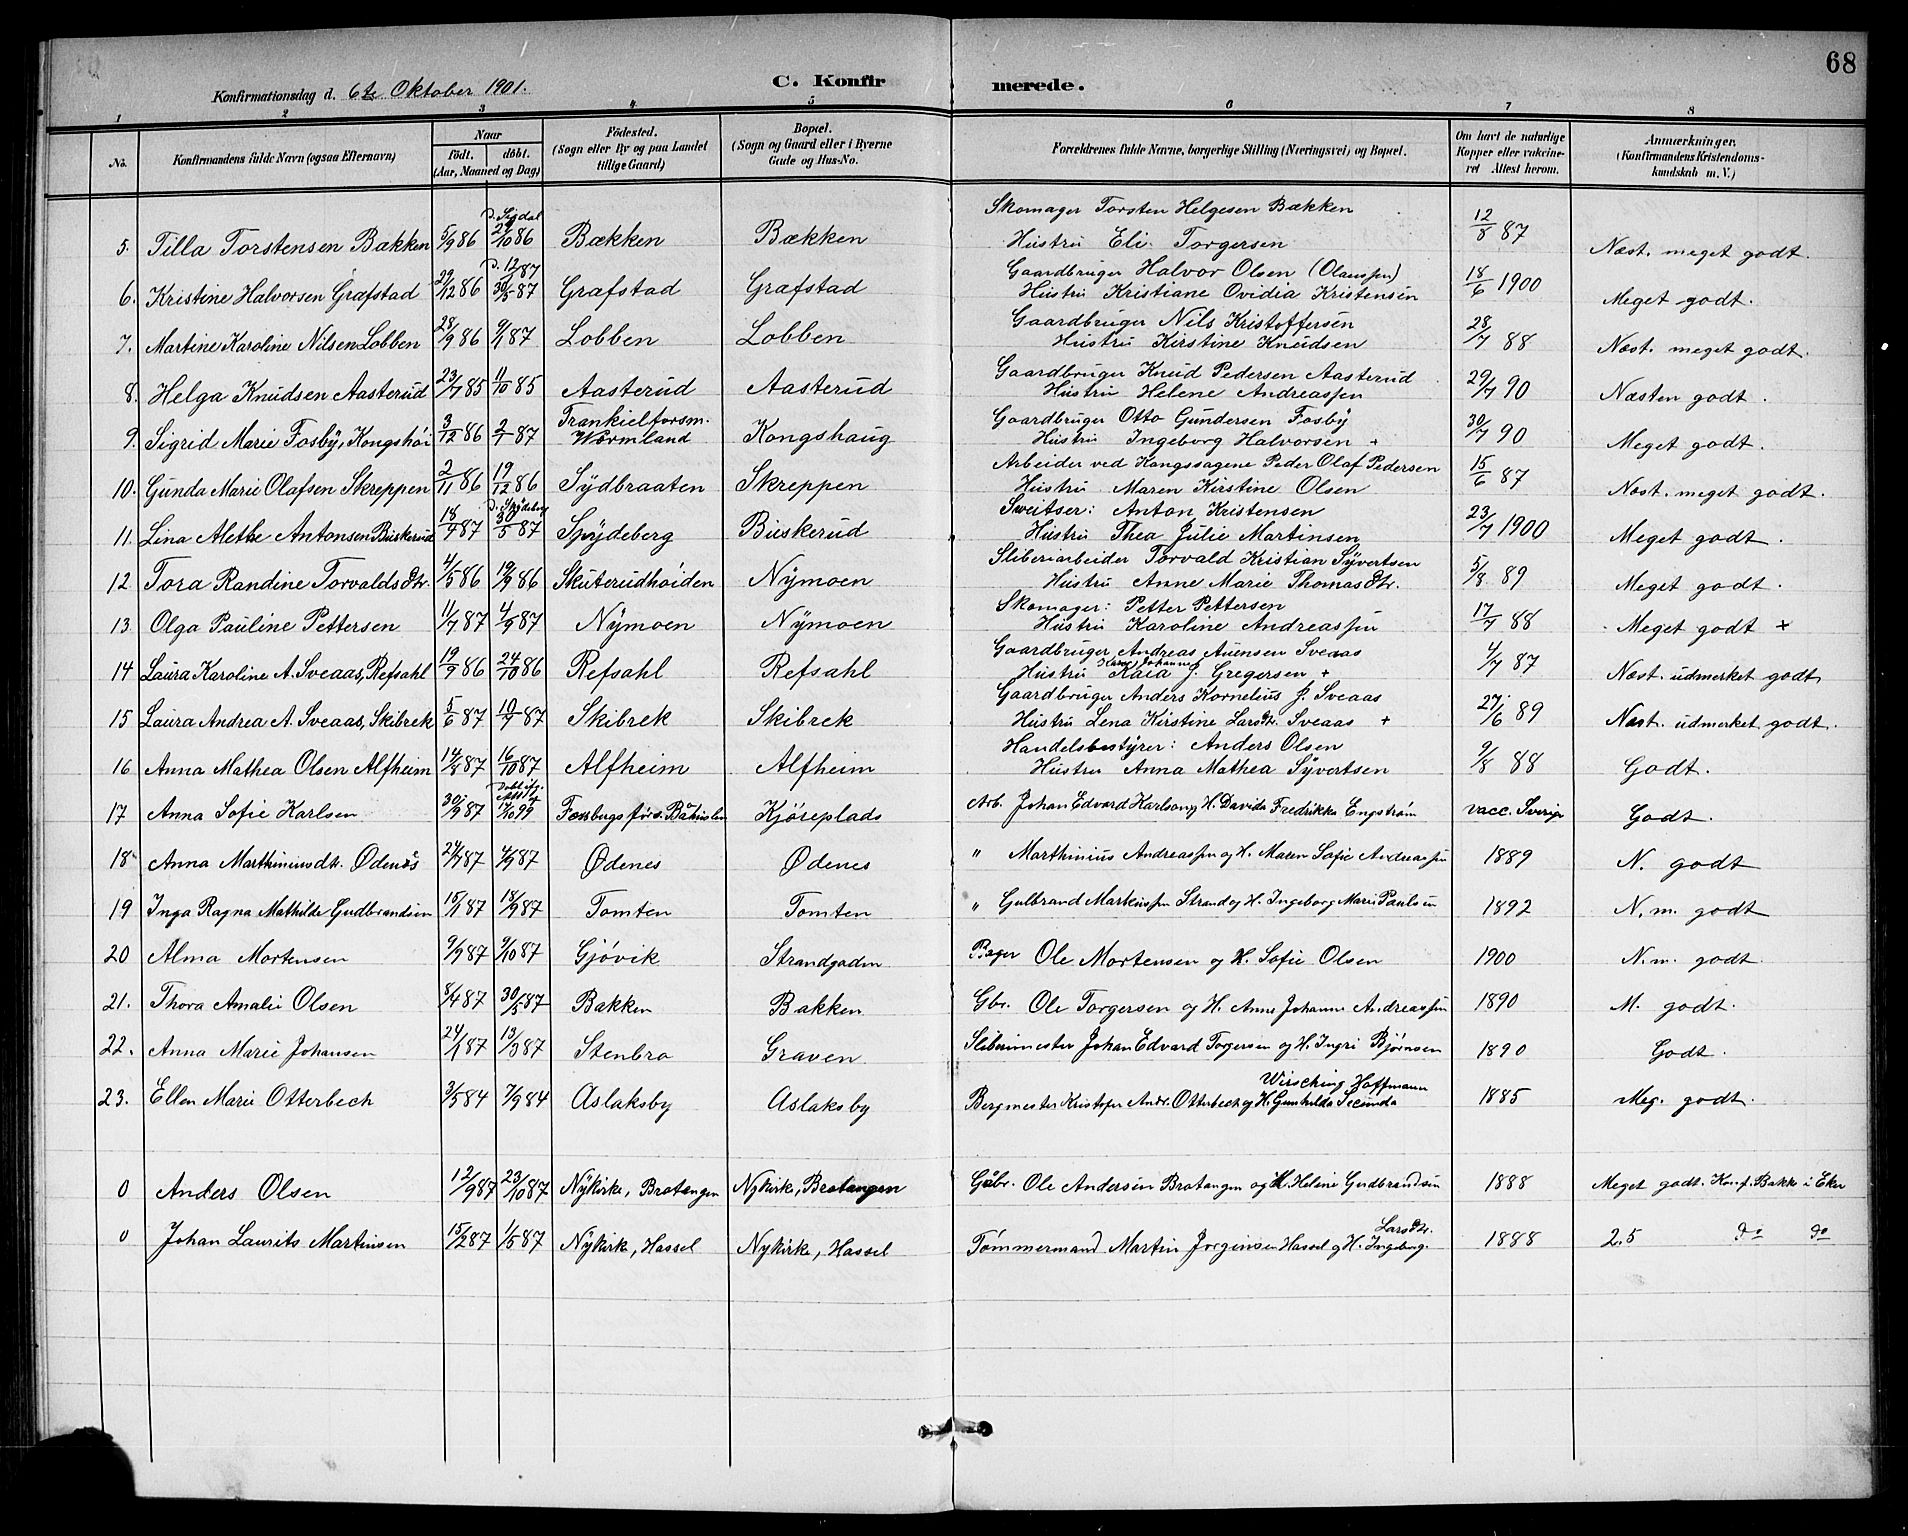 68
Konfirmationsdag d. 6te Oktober 1901. C. Konfirmerede.
1 2 3 4 5 6 7 8
No. Konfirmandens fulde Navn (ogsaa Efternavn) Naar født. døbt. (Aar, Maaned og Dag) Fødested. (Sogn eller By og paa Landet tillige Gaard) Bopæl. (Sogn og Gaard eller i Byerne Gade og Hus-No. Forældrenes fulde Navne, borgerlige Stilling (Næringsvei) og Bopæl. Om havt de naturlige Kopper eller vakcineret Attest herom. Anmærkninger, (Konfirmandens Kristendomskundskab m. V.)
d. Sigdal Skomager Torsten Helgesen Bækken
5. Tilla Torstensen Bækken 5/9 86 24/10 86 Bækken Bækken Hustru Eli Torgersen 12/8 87 Næst. meget godt.
d. 12/87 Gaardbruger Halvor Olsen (Olaussen)
6. Kristine Halvorsen Græfstad 29/12 86 30/5 87 Græfstad Græfstad Hustru Kristiane Ovidia Kristensen 18/6 1900 Meget godt.
Gaardbruger Nils Kristoffersen
7. Martine Karoline Nilsen Lobben 28/9 86 9/1 87 Lobben Lobben Hustru Kirstine Knudsen 28/7 88 Næst. meget godt.
Gaardbruger Knud Pedersen Aasterud
8. Helga Knudsen Aasterud 23/7 85 11/10 85 Aasterud Aasterud Hustru Helene Andreassen 29/7 90 Næsten godt.
Frankielforsm. Gaardbruger Otto Gundersen Fosby
9. Sigrid Marie Fosby, Kongshöi 3/12 86 2/1 87 Wermland Kongshaug Hustru Ingeborg Halvorsen + 30/7 90 Meget godt.
Arbeider ved Kongssagene Peder Olaf Pedersen
10. Gunda Marie Olafsen Skreppen 2/11 86 19/12 86 Sydbraaten Skreppen Hustru Maren Kirstine Olsen 15/6 87 Næst. meget godt.
d. Spydeberg Sveitser: Anton Kristensen
11. Lina Alethe Antonsen Buskerud 18/4 87 30/5 87 Spydeberg Buskerud Hustru Thea Julie Martinsen 23/7 1900 Meget godt.
Sliberiarbeider Torvald Kristian Syvertsen
12 Tora Randine Torvaldsdtr. 4/5 86 19/9 86 Skuterudhöiden Nymoen Hustru Anne Marie Thomasdtr. 5/8 89 Meget godt.
Skomager: Petter Pettersen
13 Olga Pauline Pettersen 11/7 87 4/9 87 Nymoen Nymoen Hustru Karoline Andreassen 17/7 88 Meget godt +
Gaardbruger Andreas Auensen Sveaas
14 Laura Karoline A. Sveaas, Refsahl 19/9 86 24/10 86 Refsahl Refsahl Hustru Kaia J. Gregersen + 4/7 87 Næst. udmerket godt
Gaardbruger Anders Kornelius J. Sveaas
15 Laura Andrea A. Sveaas, Skibrek 5/6 87 10/7 87 Skibrek Skibrek Hustru Lena Kirstine Larsdtr. Sveaas + 27/6 89 Næst. udmerket godt.
Handelsbestyrer: Anders Olsen
16 Anna Mathea Olsen Alfheim 14/8 87 16/10 87 Alfheim Alfheim Hustru Anna Mathea Syvertsen 9/8 88 Godt.
17 Anna Sofie Karlsen 30/9 87 17/10 99 Kjöreplads Arb. Johan Edvard Karlson og H. Davida Fredrikke Engström vacc. Sverige Godt.
18 Anna Marthiniusdtr. Ødenes 24/7 87 4/9 87 Ødenes Ødenes " Marthinius Andreassen og H. Maren Sofie Andreassen 1889 N. godt
19 Inga Ragna Mathilde Gudbrandsen 15/1 87 18/9 87 Tomten Tomten " Gulbrand Markussen Strand og H. Ingeborg Marie Paulsen 1892 N. m. godt
20 Alma Mortensen 9/9 87 9/10 87 Gjøvik Strandgaden Bager Ole Mortensen og H. Sofie Olsen 1900 N. m. godt
21. Thora Amalie Olsen 8/4 87 30/5 87 Bakken Bakken Gbr. Ole Torgersen og H. Anne Johanne Andreassen 1890 M. godt.
22. Anna Marie Johansen 24/1 87 13/3 87 Stenbro Graven Slibermester Johan Edvard Torgersen og H. Ingri Bjørnsen 1890 Godt.
Wirsching Hoffmann
23. Ellen Marie Otterbech 3/5 84 7/9 84 Aslaksby Aslaksby Bergmester Kristofer Andr. Otterbech og H. Gunhilda Secunda 1885 Meg. godt.
0 Anders Olsen 12/9 87 23/10 87 Nykirke, Bratangen Nykirke, Bratangen Gåbr. Ole Andersen Bratangen og H. Helene Gudbrandsen 1888 Meget godt. Konf. Bakke i Eker
Larsdtr.
0 Johan Laurits Martinsen 15/2 87 1/5 87 Nykirke, Hassel Nykirke, Hassel Tømmermand Martin Jørginsen Hassel og H. Ingeborg. 1888 2.5 do do